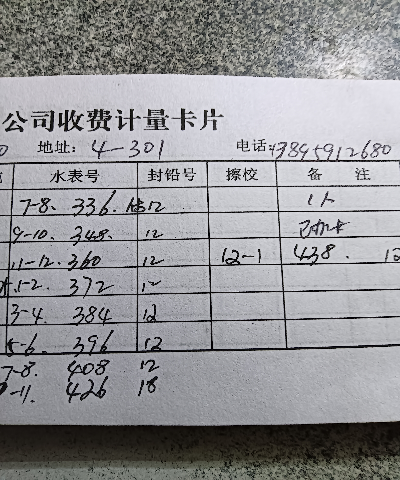 公司收费计量卡片
地址: 4-301 电话 13895912680
水表号 封铅号 擦校 备 注
7-8. 336. 12 1人
9-10. 348. 12 已办卡
11-12. 360 12 12-1 438. 12
1-2. 372 12
3-4. 384 12
5-6. 396 12
7-8. 408 12
9-11. 426 18